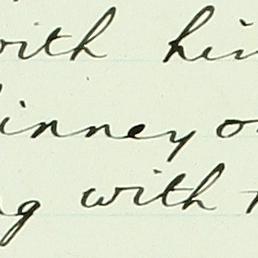 with him
inney o
g with